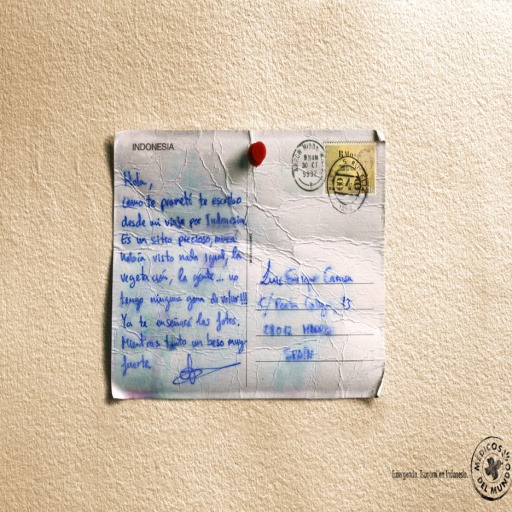 INDONESIA
Hola,
como te prometí te escribo
desde mi viaje por Indonesia
Es un sitio precioso, nunca
había visto nada igual, la
vegetación, la gente... no
tengo ninguna gana de volver!!!
Ya te enseñaré las fotos.
Mientras tanto un beso muy
fuerte.
Luis Enrique
C/
28012
SPAIN
Emergencia. Tsunami en Indonesia.
MÉDICOS
DEL MUNDO